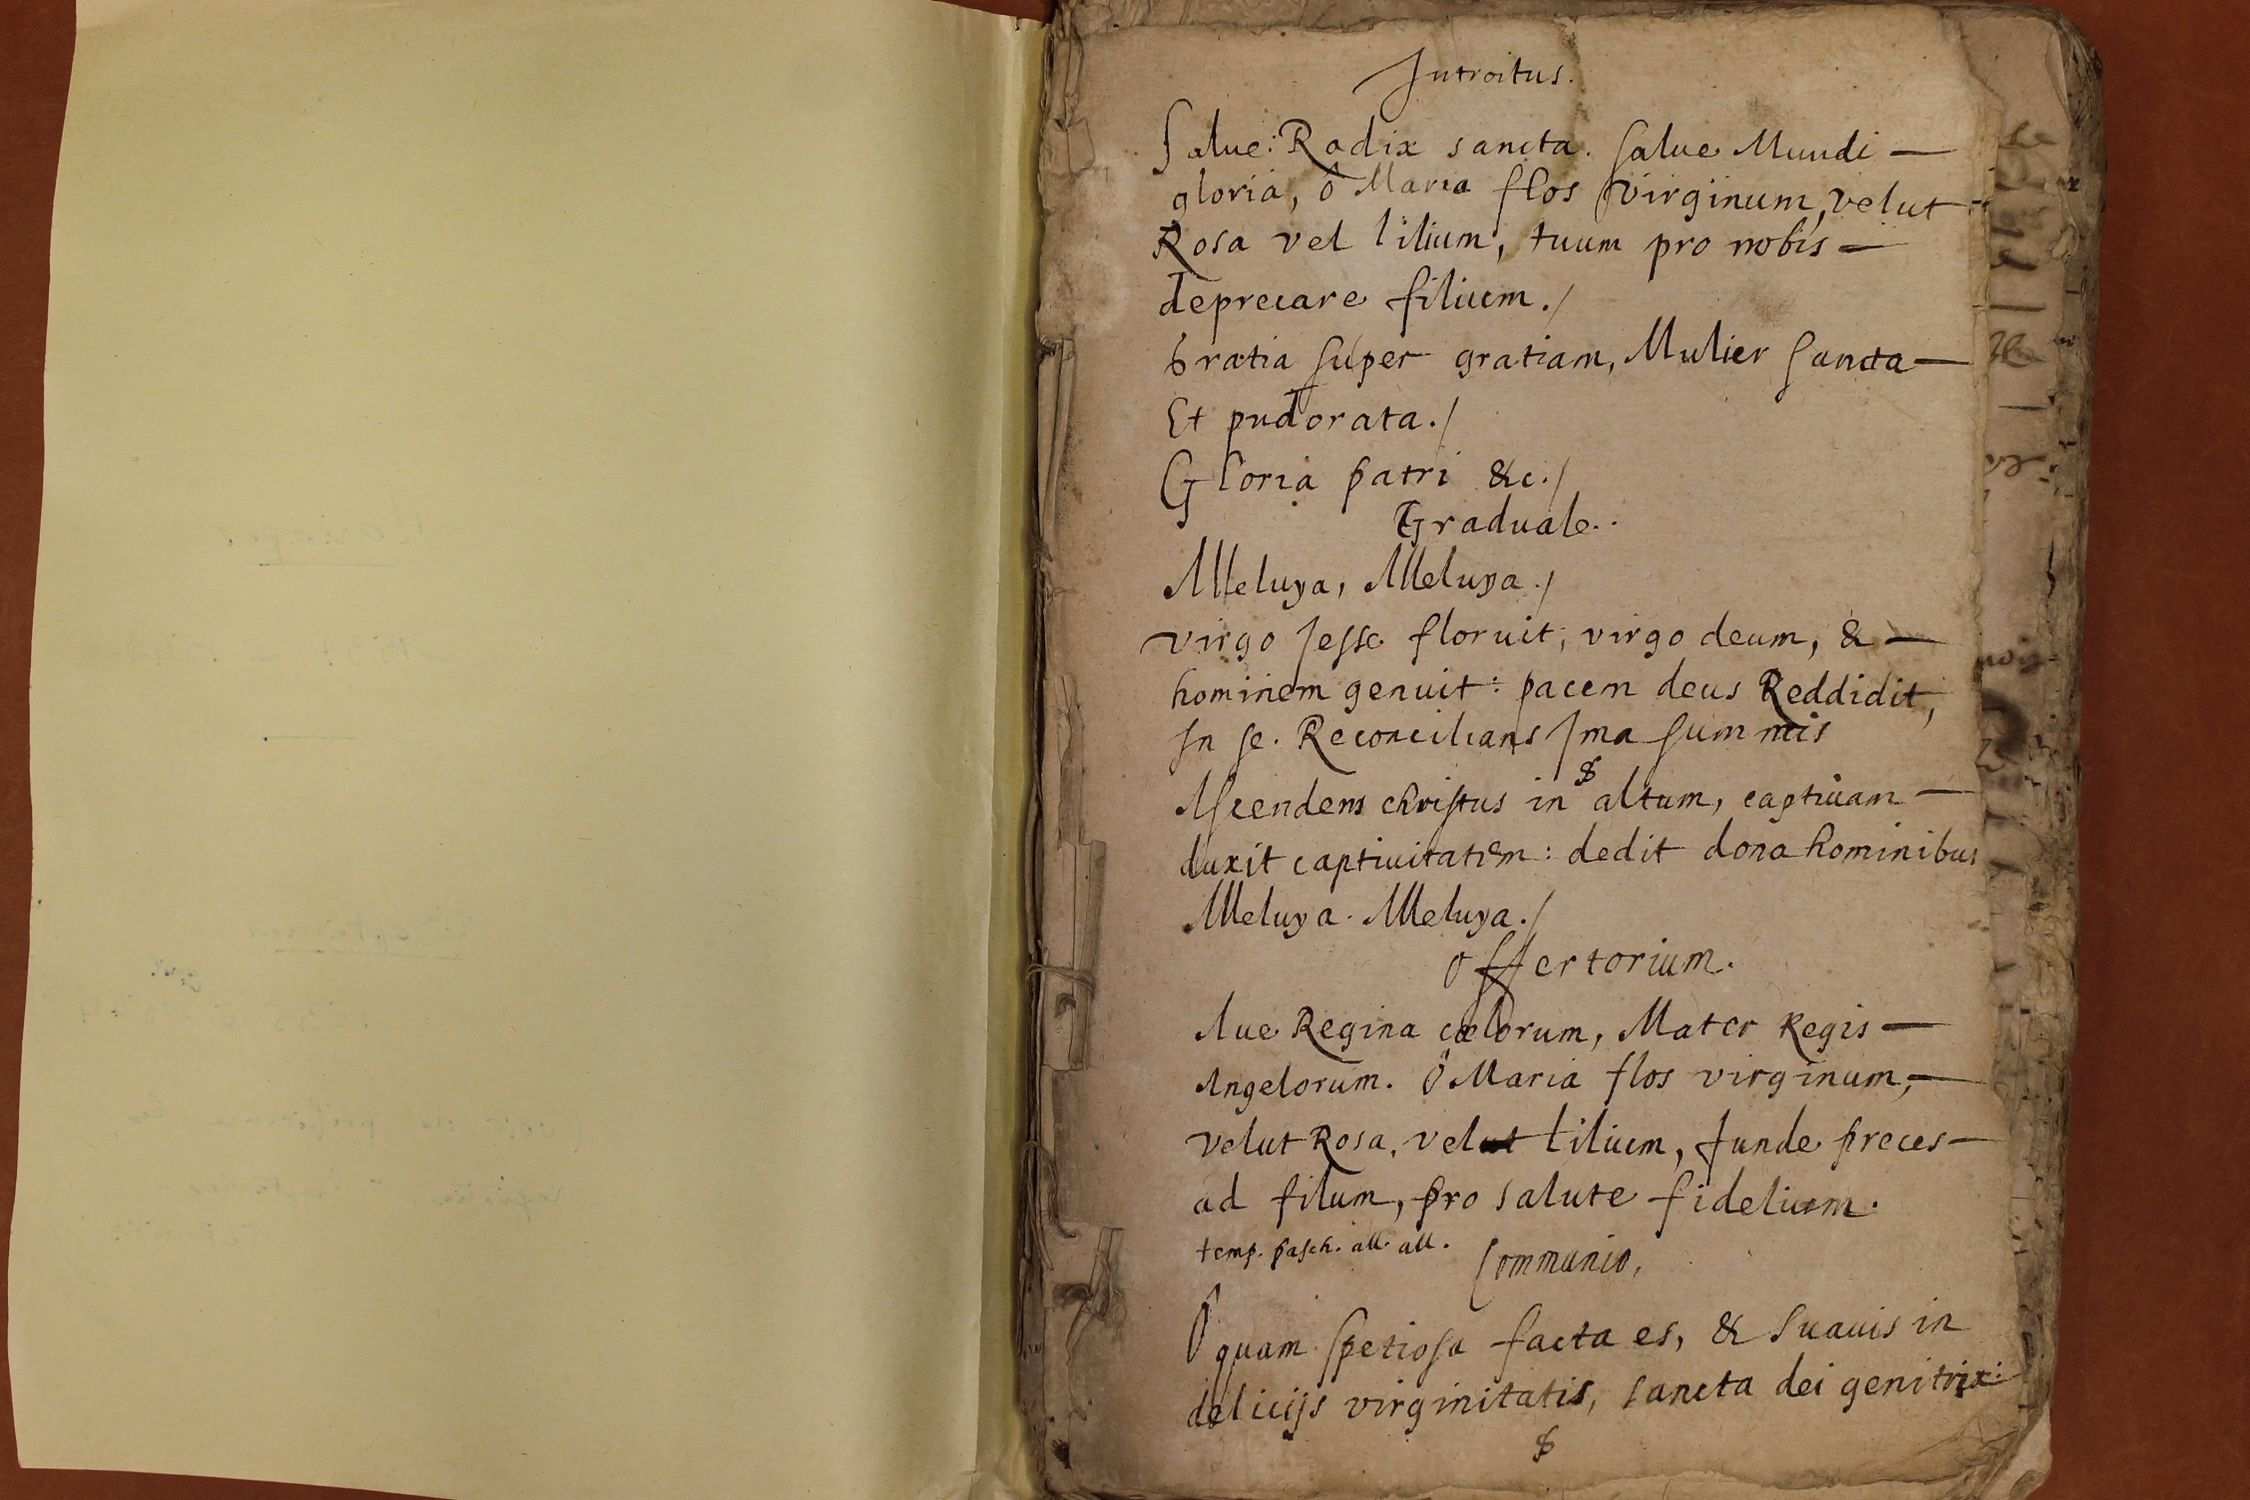 Introitus.
Salue: Radix sancta. salue Mundi —
gloria, ô Maria flos virginum, velut
Rosa vel lilium, tuum pro nobis —
deprecare filium./
Gratia super gratiam, Mulier sancta —
Et pudorata./
Gloria patri &c./
Graduale..
Alleluya, Alleluya./
virgo Jesse floruit; virgo deum, & —
hominem genuit: pacem deus Reddidit,
In se. Reconcilians Ima summis
Ascendens christus in altum, captiuam —
duxit captiuitatem: dedit dona hominibus
Alleluya. Alleluya./
offertorium.
Aue Regina cælorum, Mater Regis —
Angelorum. ô Maria flos virginum, —
velut Rosa, velut lilium, funde preces —
ad filum, pro salute fidelium.
temp. pasch. all. all.
Communio,
O quam spetiosa facta es, & suauis in
delicijs virginitatis, sancta dei genitrix: